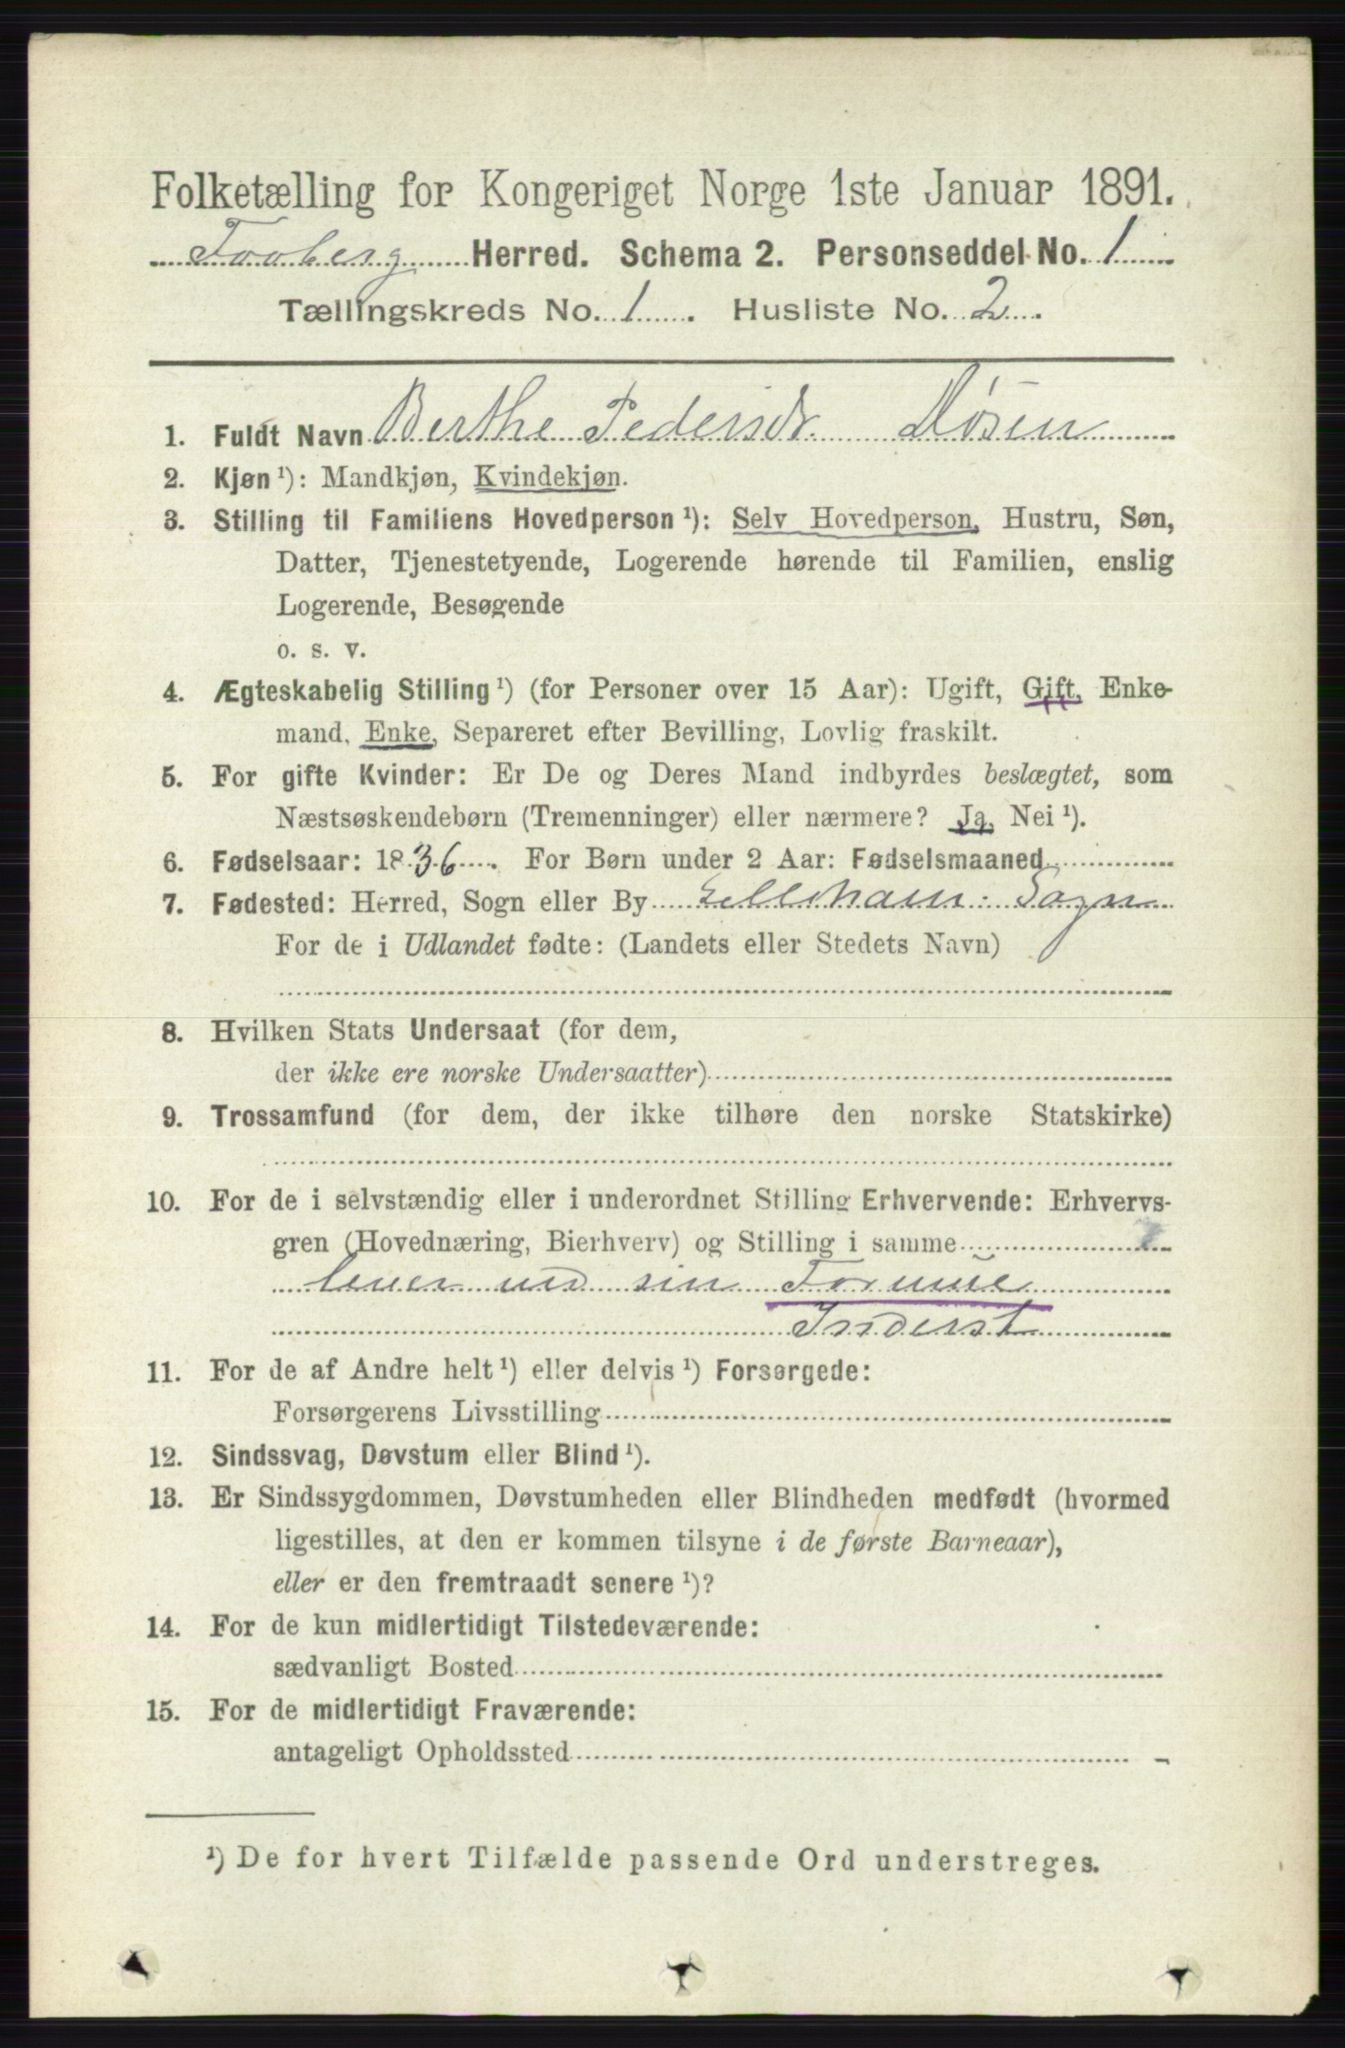 Folketælling for Kongeriget Norge 1ste Januar 1891.
Faaberg Herred. Schema 2. Personseddel No. 1
Tællingskreds No. 1. Husliste No. 2.
1. Fuldt Navn Berthe Pedersdr. Døsen
2. Kjøn ¹): Mandkjøn, Kvindekjøn.
3. Stilling til Familiens Hovedperson ¹): Selv Hovedperson, Hustru, Søn,
Datter, Tjenestetyende, Logerende hørende til Familien, enslig
Logerende, Besøgende
o. s. v.
4. Ægteskabelig Stilling ¹) (for Personer over 15 Aar): Ugift, Gift, Enke-
mand, Enke, Separeret efter Bevilling, Lovlig fraskilt.
5. For gifte Kvinder: Er De og Deres Mand indbyrdes beslægtet, som
Næstsøskendebørn (Tremenninger) eller nærmere? Ja, Nei ¹).
6. Fødselsaar: 1836. For Børn under 2 Aar: Fødselsmaaned
7. Fødested: Herred, Sogn eller By Lilleham: Sogn
For de i Udlandet fødte: (Landets eller Stedets Navn)
8. Hvilken Stats Undersaat (for dem,
der ikke ere norske Undersaatter)
9. Trossamfund (for dem, der ikke tilhøre den norske Statskirke)
10. For de i selvstændig eller i underordnet Stilling Erhvervende: Erhvervs-
gren (Hovednæring, Bierhverv) og Stilling i samme
lever ved sin Formue
Inderst
11. For de af Andre helt ¹) eller delvis ¹) Forsørgede:
Forsørgerens Livsstilling
12. Sindssvag, Døvstum eller Blind ¹).
13. Er Sindssygdommen, Døvstumheden eller Blindheden medfødt (hvormed
ligestilles, at den er kommen tilsyne i de første Barneaar),
eller er den fremtraadt senere ¹)?
14. For de kun midlertidigt Tilstedeværende:
sædvanligt Bosted
15. For de midlertidigt Fraværende:
antageligt Opholdssted
¹) De for hvert Tilfælde passende Ord understreges.